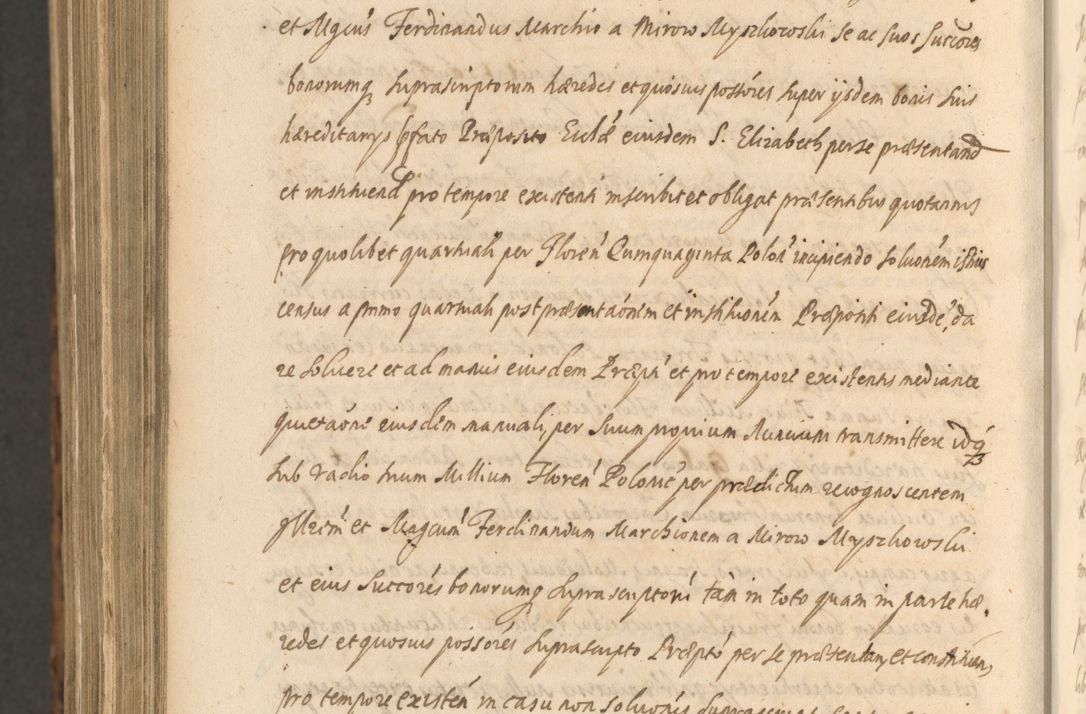 et Mgcus Ferdinandus Marchio a Mirow Myszkowski se ac suos succores
bonorumq suprascriptorum hæredes et quosvis possores super ijsdem bonis suis
hæreditarijs pfato Præposito Ecclæ eiusdem S. Elizabeth per se præsentand
et instituend pro tempore existenti inscribit et obligat præsentibus quotannis
pro quolibet quartuali per Floren Quinquaginta Polon incipiendo soluonem istius
census a primo quartuali post præsentaonem et institionem Præpositi eiusdē, da
re solvere et ad manus eiusdem Præpti et pro tempore existentis mediante
quietaone eiusdem manuali, per suum proprium Nuncium transmittere idq
sub vadio trium Millium Floren Polonic per prædictum recognoscentem
Illrem et Magcum Ferdinandum Marchionem a Mirow Myszkowski
et eius succores bonorumq suprascriptoru tam in toto quam in parte hæ-
redes et quosvis possores suprascripto Præpto per se præsentan, et constituen,
pro tempore existen in casu non soluonis